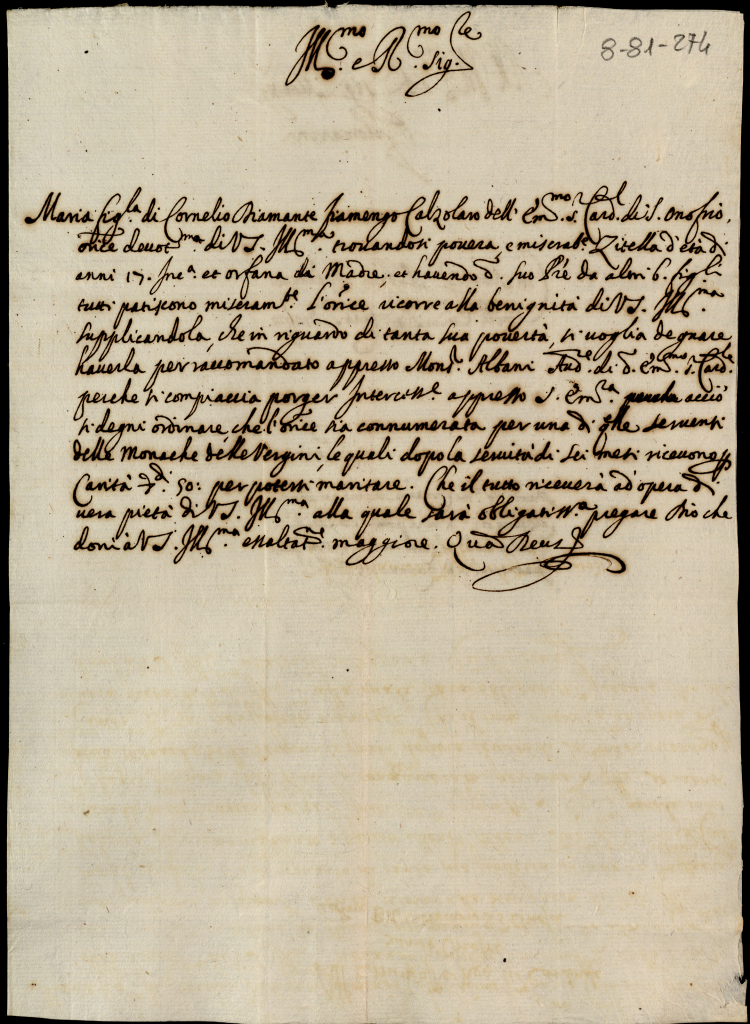 Ill.mo e R.mo Sig.re
8-81-274
Maria figl.la di Cornelio Diamante fiamengo Calzolaro dell' Em.mo S.r Card.l di S. Onofrio,
or̃ice devot.ma di VS. Ill.ma trovandosi povera, e miserab. Zitella d'età di
anni 17. in c.a et orfana di Madre, et havendo d.o suo P̃re da altri 6. figli
tutti patiscono miseram.te l'or̃ice ricorre alla benignità di VS. Ill.ma
supplicandola, che in riguardo di tanta sua povertà, si voglia degnare
haverla per raccomandato appresso Mons.r Albani Aud.e di d.o Em.mo S.r Card.le
perche si compiaccia porger Intercess.e appresso S. Em.za acciò
si degni ordinare, che l'or̃ice sia connumerata per una di q̃lle serventi
delle Monache delle Vergini, le quali dopo la servità di sei mesi ricevono p
Carità ∇.di 50: per potersi maritare. Che il tutto riceverà ad opera di
vera pietà di VS. Ill.ma alla quale sarà obligatiss.a pregare Dio che
doni à VS. Ill.ma essaltat.ne maggiore. Quã Deus